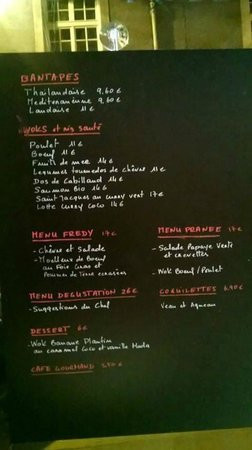 BANTAPES
Thaïlandaise 9,60 €
Mediterranéenne 9,60 €
Landaise 11 €
WOKS et riz santé
Poulet 11 €
Boeuf 11 €
Fruits de mer 14 €
Legumes tournedos de chèvre 11 €
Dos de Cabillaud 14 €
Saumon Bio 16 €
Saint Jacques au curry vert 17 €
Lotte curry coco 16 €
MENU FREDY 17 €
- Chèvre et Salade
- Moelleux de Boeuf
au Foie Gras et
Pommes de Terre
MENU PRANEE 17 €
- Salade Papaye Verte
et crevettes
- Wok Boeuf / Poulet
MENU DEGUSTATION 26 €
- Suggestions du Chef
COQUILLETTES 9,90 €
Veau et Agneau
DESSERT 6 €
- Wok Banane Plantin
au caramel Coco et vanille
CAFE GOURMAND